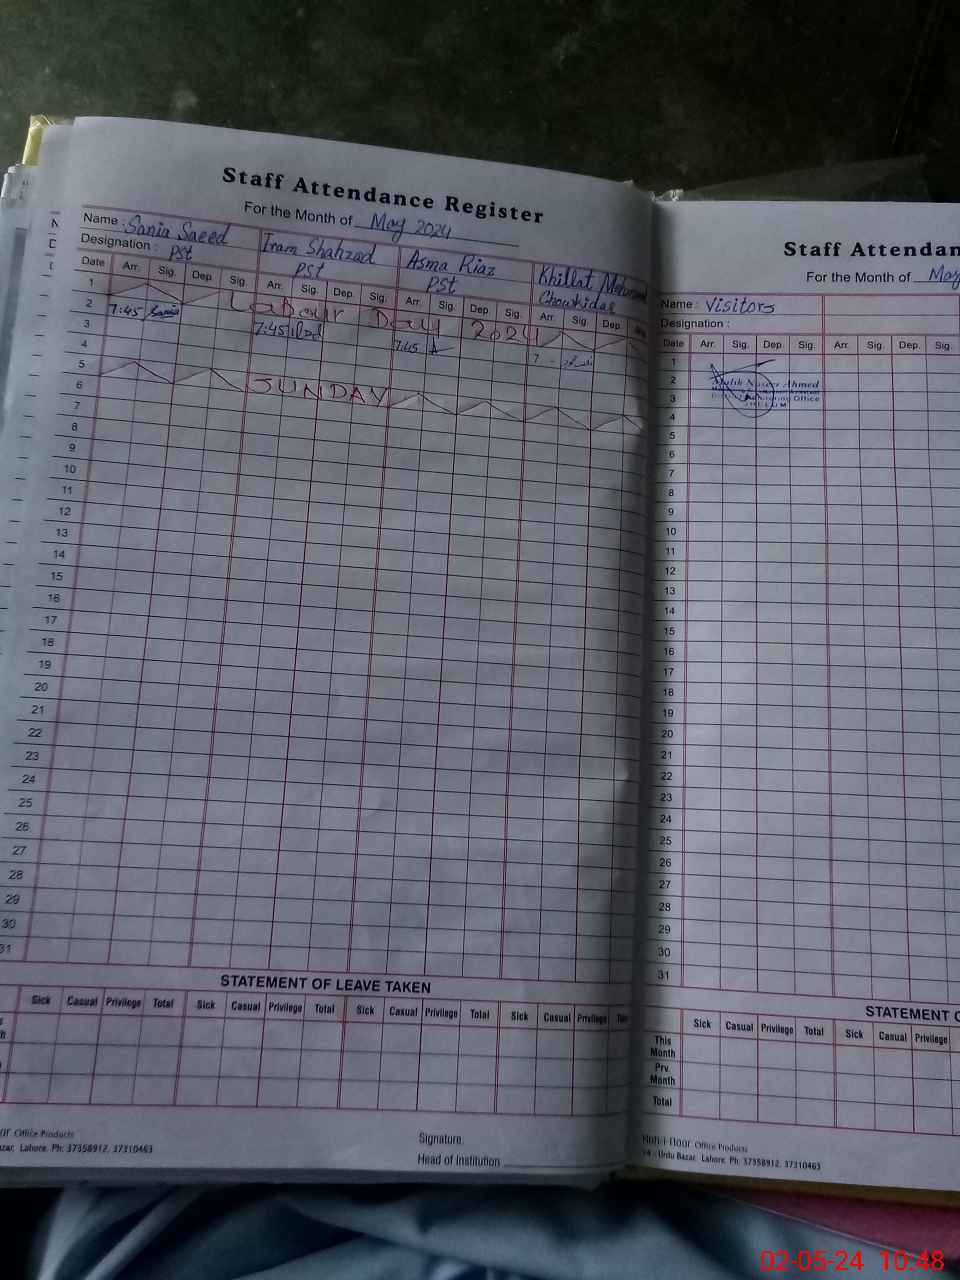 Staff Attendance Register
For the Month of May 2024
Name : Sania Saeed Iram Shahzad Asma Riaz Khillat
Designation : PST PST PST Chowkidar
Date Arr. Sig. Dep. Sig. Arr. Sig. Dep. Sig. Arr. Sig. Dep. Sig. Arr. Sig. Dep. Sig.
1 Labour Day 2024
2 7:45 Sania 7:45 7:45 7
3
4
5 SUNDAY
6
7
8
9
10
11
12
13
14
15
16
17
18
19
20
21
22
23
24
25
26
27
28
29
30
31
STATEMENT OF LEAVE TAKEN
Sick Casual Privilege Total Sick Casual Privilege Total Sick Casual Privilege Total Sick Casual Privilege
Office Products
Lahore. Ph: 37358912, 37310463
Signature.
Head of Institution
Staff Attendan
For the Month of May
Name : Visitors
Designation :
Date Arr. Sig. Dep. Sig. Arr. Sig. Dep. Sig.
1
2 Malik Ahmed
3 Office
4
5
6
7
8
9
10
11
12
13
14
15
16
17
18
19
20
21
22
23
24
25
26
27
28
29
30
31
STATEMENT O
Sick Casual Privilege Total Sick Casual Privilege
This Month
Prv. Month
Total
Koh-i-Noor Office Products
Urdu Bazar, Lahore. Ph: 37358912, 37310463
02-05-24 10:48